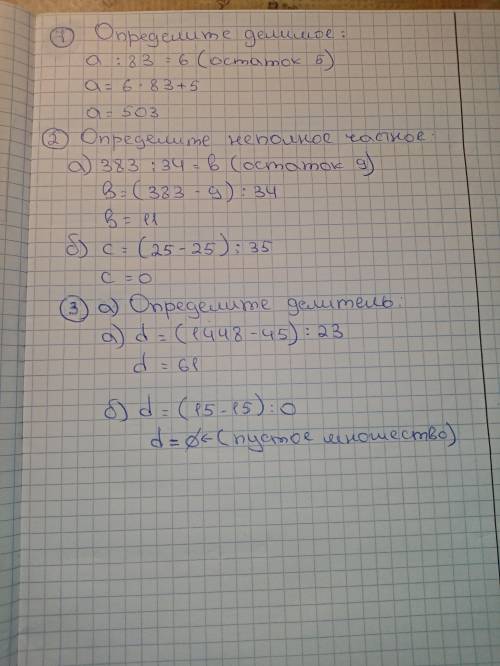 ① Определите делимое:
a : 83 = 6 (остаток 5)
a = 6 · 83 + 5
a = 503
② Определите неполное частное:
а) 383 : 34 = в (остаток 9)
в = (383 - 9) : 34
в = 11
б) c = (25 - 25) : 35
c = 0
③ а) Определите делитель:
а) d = (1448 - 45) : 23
d = 61
б) d = (15 - 15) : 0
d = ∅ ← (пустое множество)